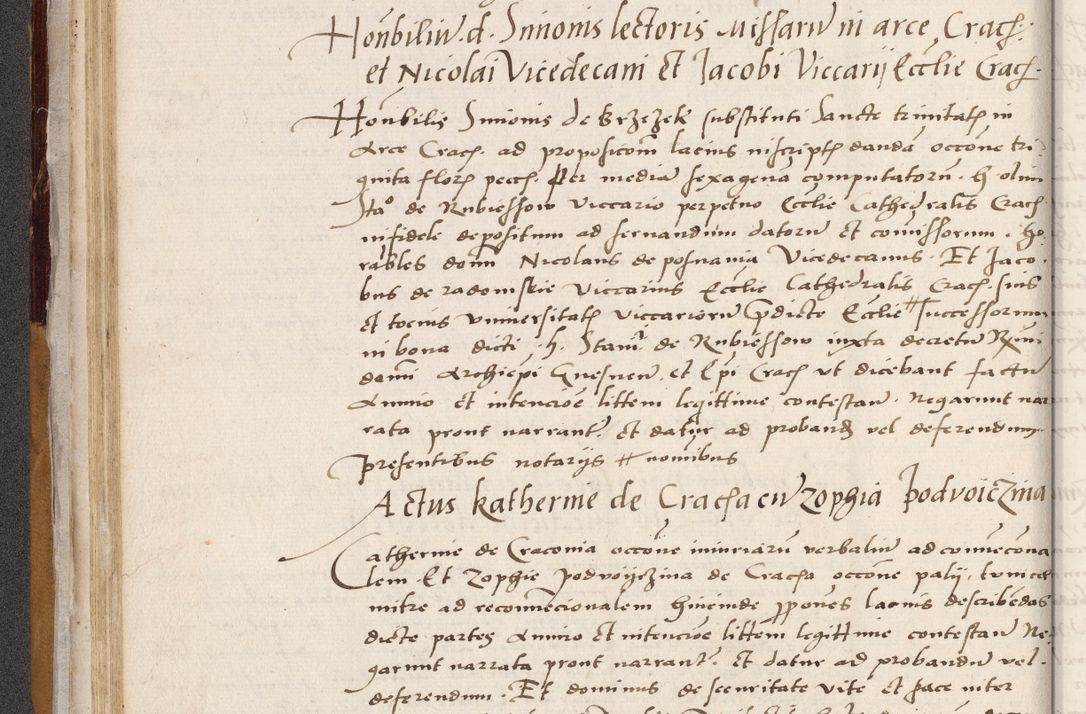 Honbiliu d. Simonis lectoris Missaru in arce Crac.
et Nicolai Vicedecani et Jacobi Viccarij Ecclie Crac.
Honbilis Simonis de Krzezek substituti Sancte trinitatis in
Arce Crac. ad propositom lacius inscriptis danda occone tri
ginta flor pecc. per media sexagena computatoru. h. olim
Stao de Rubiessow Viccario perpetuo Ecclie Cathedralis Crac
in fidele depositum ad servandum datoru et comissorum. Ho
rables domi Nicolaus de posnania Vicedecanus. Et Jaco
bus de radomskie Viccarius Ecclie Cathedralis Crac. suis
et tocius universitatis viccarioru predicte Ecclie # successorum
in bona dicti. h. Stani de Rubiessow iuxta decretu Rmi
domi Archiepi Gnesnen. et Epi Crac ut dicebant factu
Animo et intencioe littem legittime contestan. Negarunt nar
rata prout narrant. et datur ad proband vel deferendum
presentibus notarijs # nomibus
Actus katherine de Cracia cu zophia podvoiczina
Catherine de Cracovia occone iniuriaru verbaliu ad convecona
lem. Et zophie podvoijczina de Cracia occone palij, tunice
mitre ad reconvecionalem hincinde ppones lacius describedas
dicte partes Animo et intencioe littem legittime contestan Ne
garunt narrata prout narrant. et datur ad probandu vel
deferendum. Et dominus de securitate vite et pace inter